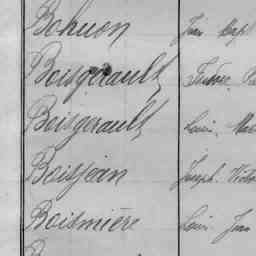 Bohuon Jean Bapt
Boisgerault
Boisgerault Louis
Boisjean Joseph Victo
Boismière Louis Jean